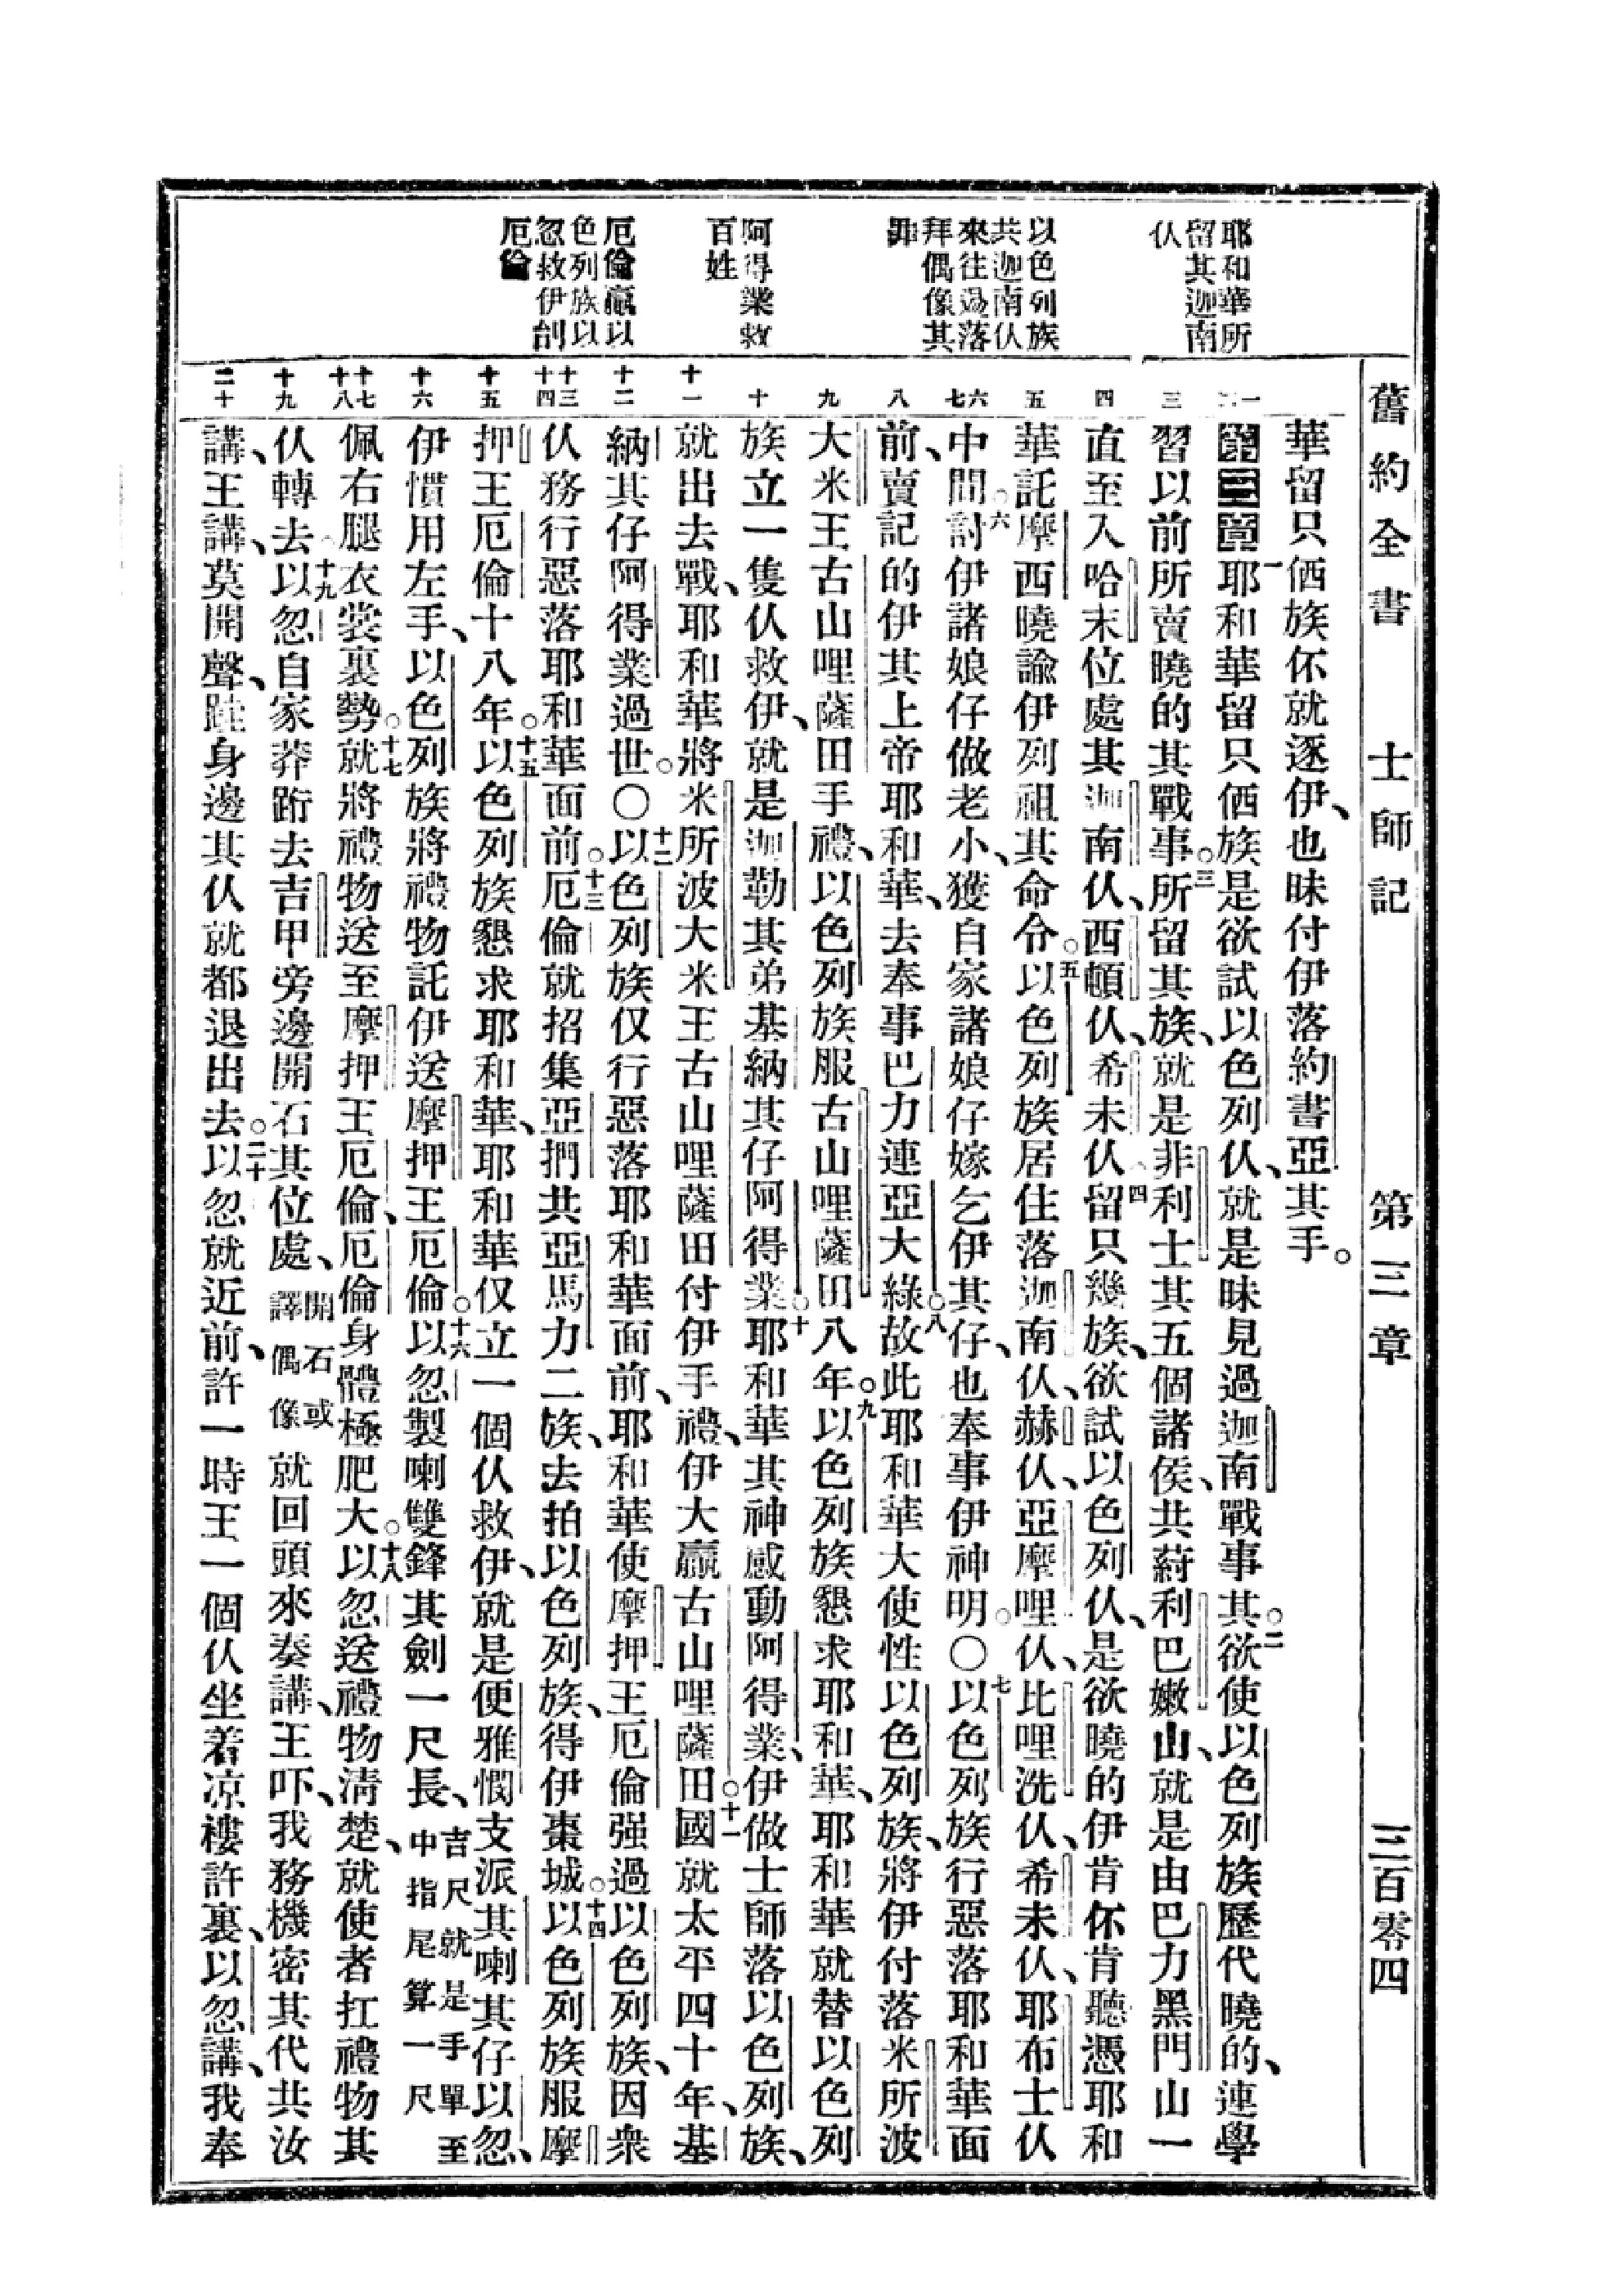 舊約全書 士師記 第三章 三百零四
耶和華所
留其迦南
仈
以色列族
共迦南仈
來往過落
拜偶像其
罪
阿得業救
百姓
厄倫贏以
色列族以
忽救伊刣
厄倫
一
二
三
四
五
六
七
八
九
十
十一
十二
十三
十四
十五
十六
十七
十八
十九
二十
華留只㑚族伓就逐伊、也昧付伊落約書亞其手。
第三章 一耶和華留只㑚族是欲試以色列仈、就是昧見過迦南戰事其。二欲使以色列族歷代曉的、連學
習以前所賣曉的其戰事。三所留其族、就是非利士其五個諸侯、共葤利巴嫩山、就是由巴力黑門山一
直至入哈末位處其迦南仈、西頓仈、希未仈。四留只幾族、欲試以色列仈、是欲曉的伊肯伓肯聽憑耶和
華託摩西曉諭伊列祖其命令。五以色列族居住落迦南仈、赫仈、亞摩哩仈、比哩洗仈、希未仈、耶布士仈
中間。六討伊諸娘仔做老小、獲自家諸娘仔嫁乞伊其仔、也奉事伊神明。〇七以色列族行惡落耶和華面
前、賣記的伊其上帝耶和華、去奉事巴力連亞大綠。八故此耶和華大使性以色列族、將伊付落米所波
大米王古山哩薩田手禮、以色列族服古山哩薩田八年。九以色列族懇求耶和華、耶和華就替以色列
族立一隻仈救伊、就是迦勒其弟基納其仔阿得業。十耶和華其神感動阿得業、伊做士師落以色列族、
就出去戰、耶和華將米所波大米王古山哩薩田付伊手禮、伊大贏古山哩薩田。十一國就太平四十年、基
納其仔阿得業過世。〇十二以色列族仅行惡落耶和華面前、耶和華使摩押王厄倫强過以色列族、因衆
仈務行惡落耶和華面前。十三厄倫就招集亞捫共亞馬力二族、去拍以色列族、得伊棗城。十四以色列族服摩
押王厄倫十八年。十五以色列族懇求耶和華、耶和華仅立一個仈救伊、就是便雅憫支派其喇其仔以忽、
伊慣用左手、以色列族將禮物託伊送摩押王厄倫。十六以忽製喇雙鋒其劍一尺長、吉尺就是手單至中指尾算一尺
佩右腿衣裳裏勢。十七就將禮物送至摩押王厄倫、厄倫身體極肥大。十八以忽送禮物淸楚、就使者扛禮物其
仈轉去。十九以忽自家莽跀去吉甲旁邊開石其位處、開石或譯偶像 就回頭來奏講、王吓、我務機密其代共汝
講、王講、莫開聲、䠞身邊其仈就都退出去。二十以忽就近前、許一時王一個仈坐着凉樓許裏、以忽講、我奉